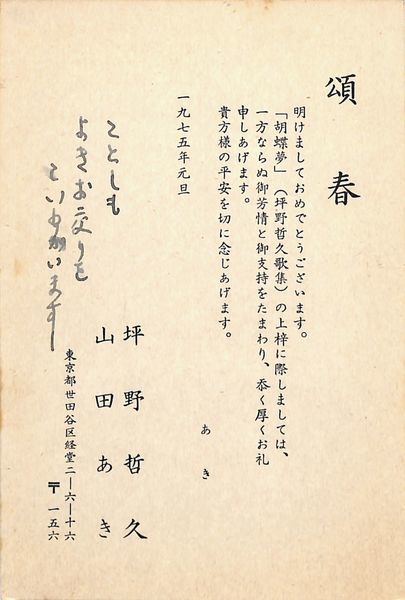 頌春
明けましておめでとうございます。
「胡蝶夢」(坪野哲久歌集)の上梓に際しましては、
一方ならぬ御芳情と御支持をたまわり、忝く厚くお礼
申しあげます。
貴方様の平安を切に念じあげます。
あき
一九七五年元旦
ことしも
よきお交りを
こいねがいます
坪野哲久
山田あき
東京都世田谷区経堂二―六―十六
〒一五六